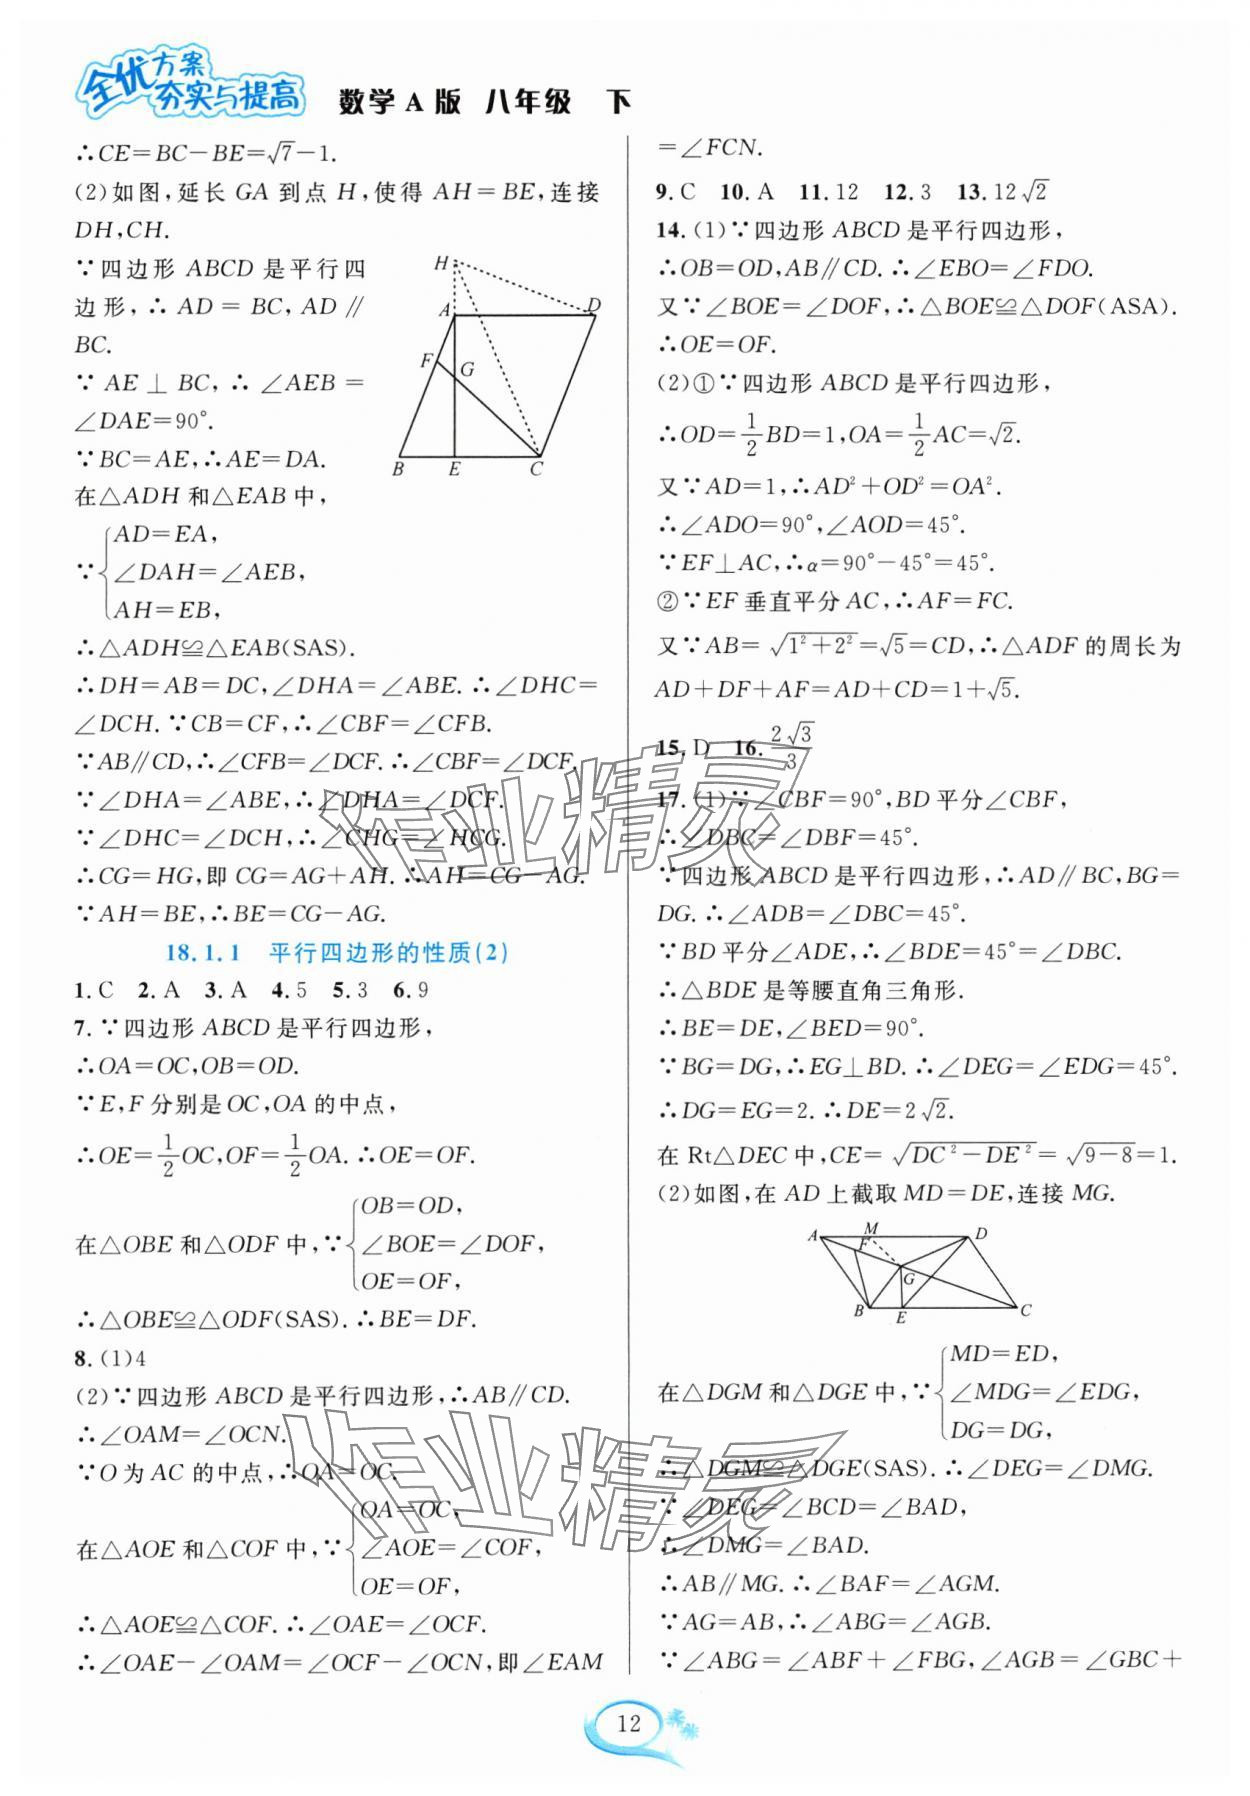 全优方案
夯实与提高
数学A版 八年级 下
∴CE=BC-BE=√7-1.
(2)如图,延长 GA 到点 H,使得 AH=BE,连接
DH,CH.
∵四边形 ABCD 是平行四
边形,∴ AD = BC, AD ∥
BC.
∵ AE ⊥ BC, ∴ ∠AEB =
∠DAE=90°.
∵BC=AE,∴AE=DA.
在△ADH 和△EAB 中,
∵{AD=EA,
∠DAH=∠AEB,
AH=EB,
∴△ADH≌△EAB(SAS).
∴DH=AB=DC,∠DHA=∠ABE.∴∠DHC=
∠DCH.∵CB=CF,∴∠CBF=∠CFB.
∵AB∥CD,∴∠CFB=∠DCF.∴∠CBF=∠DCF.
∵∠DHA=∠ABE,∴∠DHA=∠DCF.
∵∠DHC=∠DCH,∴∠CHG=∠HCG.
∴CG=HG,即 CG=AG+AH.∴AH=CG-AG.
∵AH=BE,∴BE=CG-AG.
H
A D
F
G
B E C
18.1.1 平行四边形的性质(2)
1.C 2.A 3.A 4.5 5.3 6.9
7.∵四边形 ABCD 是平行四边形,
∴OA=OC,OB=OD.
∵E,F 分别是 OC,OA 的中点,
∴OE=1/2OC,OF=1/2OA.∴OE=OF.
在△OBE 和△ODF 中,∵{OB=OD,
∠BOE=∠DOF,
OE=OF,
∴△OBE≌△ODF(SAS).∴BE=DF.
8.(1)4
(2)∵四边形 ABCD 是平行四边形,∴AB∥CD.
∴∠OAM=∠OCN.
∵O 为 AC 的中点,∴OA=OC.
在△AOE 和△COF 中,∵{OA=OC,
∠AOE=∠COF,
OE=OF,
∴△AOE≌△COF.∴∠OAE=∠OCF.
∴∠OAE-∠OAM=∠OCF-∠OCN,即∠EAM
=∠FCN.
9.C 10.A 11.12 12.3 13.12√2
14.(1)∵四边形 ABCD 是平行四边形,
∴OB=OD,AB∥CD.∴∠EBO=∠FDO.
又∵∠BOE=∠DOF,∴△BOE≌△DOF(ASA).
∴OE=OF.
(2)①∵四边形 ABCD 是平行四边形,
∴OD=1/2BD=1,OA=1/2AC=√2.
又∵AD=1,∴AD²+OD²=OA².
∴∠ADO=90°,∠AOD=45°.
∵EF⊥AC,∴α=90°-45°=45°.
②∵EF 垂直平分 AC,∴AF=FC.
又∵AB=√(1²+2²)=√5=CD,∴△ADF 的周长为
AD+DF+AF=AD+CD=1+√5.
15.D 16.2√3/3
17.(1)∵∠CBF=90°,BD 平分∠CBF,
∴∠DBC=∠DBF=45°.
∵四边形 ABCD 是平行四边形,∴AD∥BC,BG=
DG.∴∠ADB=∠DBC=45°.
∵BD 平分∠ADE,∴∠BDE=45°=∠DBC.
∴△BDE 是等腰直角三角形.
∴BE=DE,∠BED=90°.
∵BG=DG,∴EG⊥BD.∴∠DEG=∠EDG=45°.
∴DG=EG=2.∴DE=2√2.
在 Rt△DEC 中,CE=√(DC²-DE²)=√(9-8)=1.
(2)如图,在 AD 上截取 MD=DE,连接 MG.
A M D
F
G
B E C
在△DGM 和△DGE 中,∵{MD=ED,
∠MDG=∠EDG,
DG=DG,
∴△DGM≌△DGE(SAS).∴∠DEG=∠DMG.
∵∠DEG=∠BCD=∠BAD,
∴∠DMG=∠BAD.
∴AB∥MG.∴∠BAF=∠AGM.
∵AG=AB,∴∠ABG=∠AGB.
∵∠ABG=∠ABF+∠FBG,∠AGB=∠GBC+
12
作业精灵
作业精灵